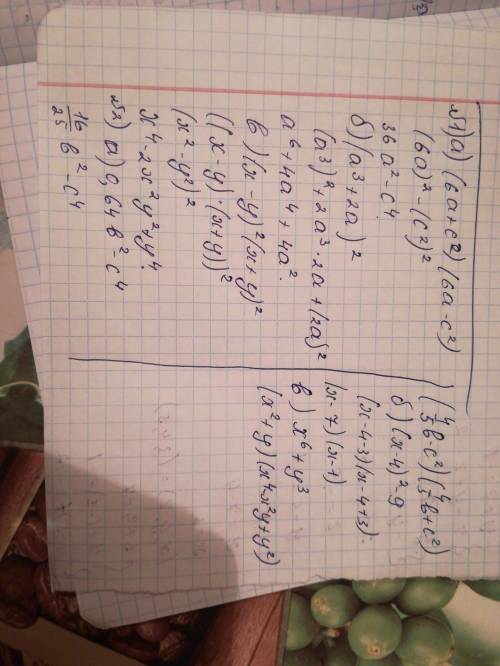 №1) а) (6a+c²)(6a-c²)
(6a)²-(c²)²
36a²-c⁴
б) (a³+2a)²
(a³)²+2a³·2a+(2a)²
a⁶+4a⁴+4a².
в) (x-y)²(x+y)²
((x-y)·(x+y))²
(x²-y²)²
x⁴-2x²y²+y⁴.
№2) а) 0,64b²-c⁴
16/25 b²-c⁴
(4/5 b-c²)(4/5 b+c²)
б) (x-4)²-9
(x-4-3)(x-4+3).
(x-7)(x-1)
в) x⁶+y³
(x²+y)(x⁴-x²y+y²)